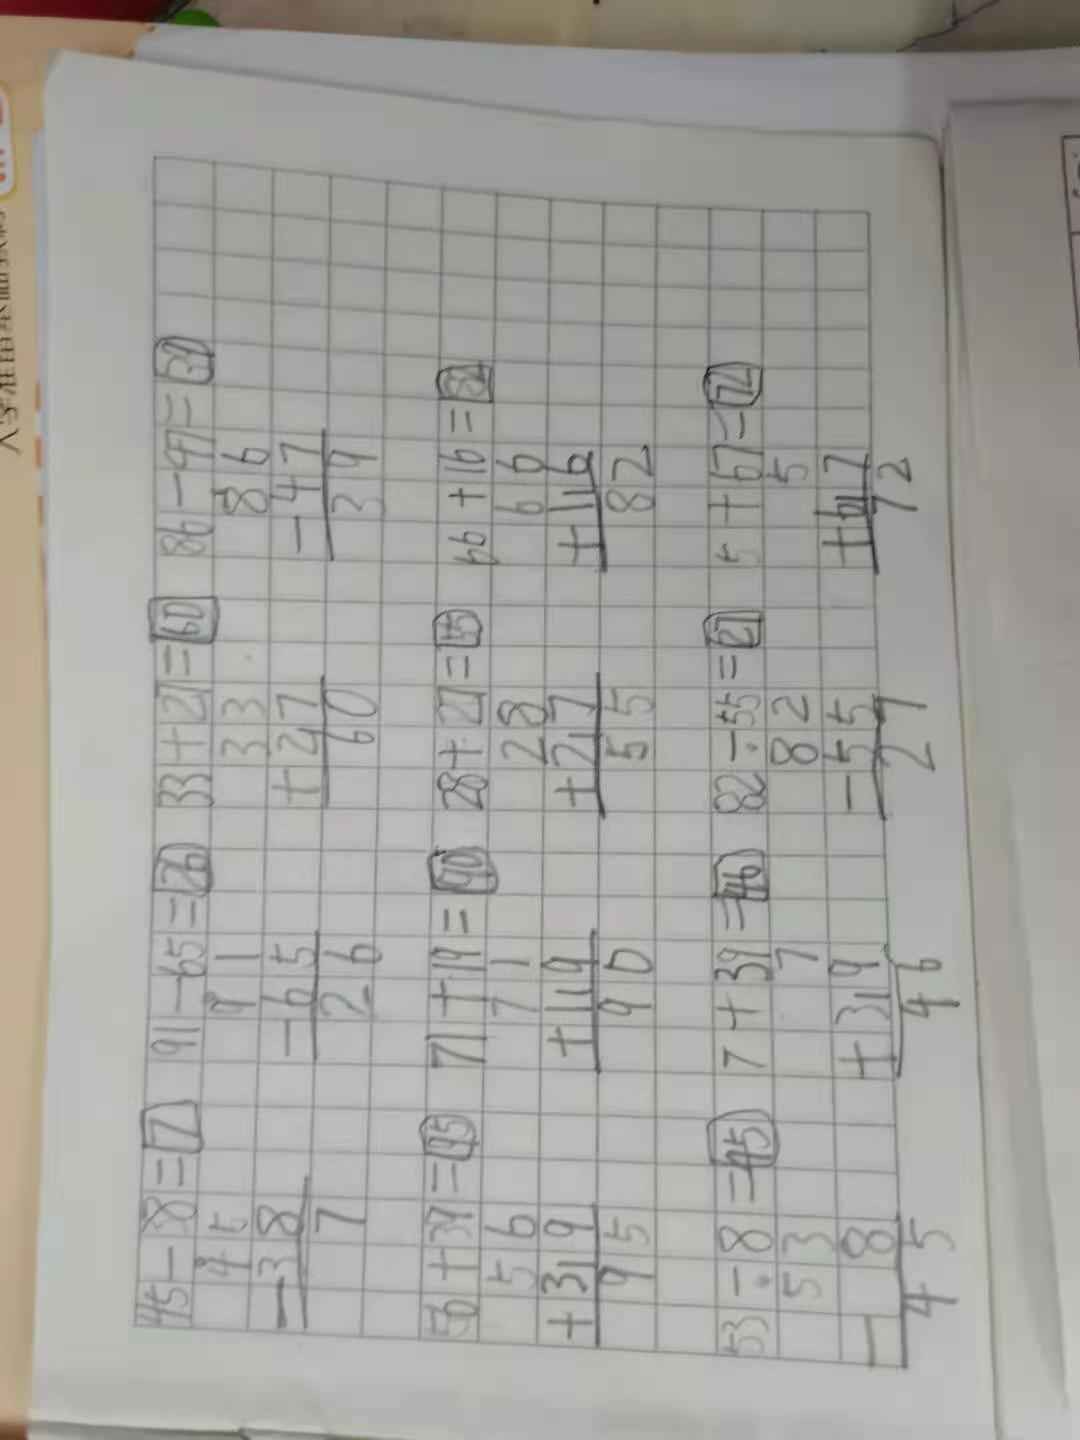 45-38=7 91-65=26 33+27=60 86-47=39
45 91 33 86
-38 -65 +27 -47
7 26 60 39
56+39=95 71+19=90 28+27=55 66+16=82
56 71 28 66
+319 +119 +217 +116
95 90 55 82
53-8=45 7+39=46 82-55=27 5+67=72
53 7 82 5
-8 +319 -55 +617
45 46 27 72